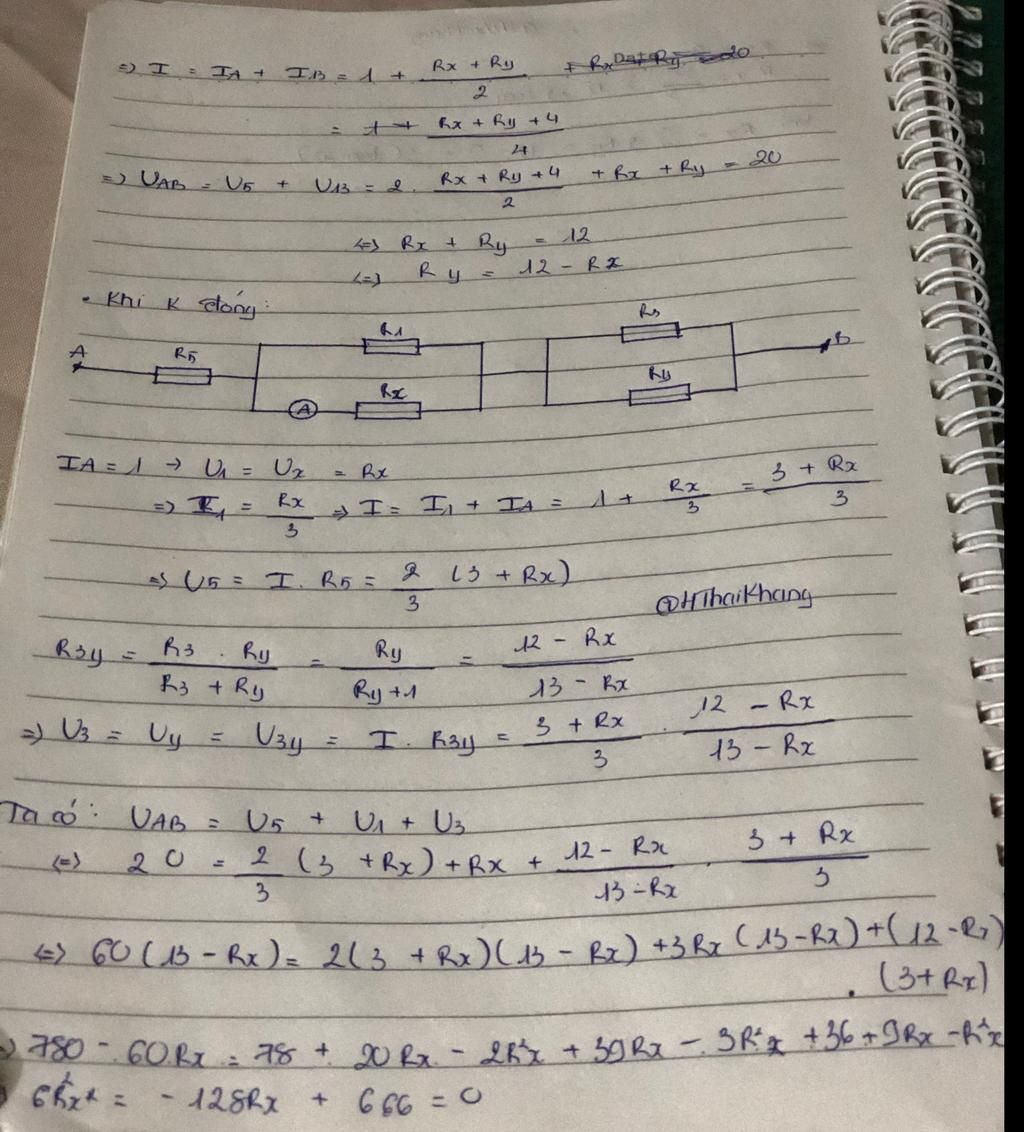 => I = IA + IB = 1 + (Rx + Ry)/2
= 1 + (Rx + Ry + 4)/4
=> UAB = U5 + U13 = 2. (Rx + Ry + 4)/2 + Rx + Ry = 20
<=> Rx + Ry = 12
<=> Ry = 12 - Rx
• Khi K đóng:
A R5 R1 A Rx R3 Ry B
IA = 1 → U1 = Ux = Rx
=> I1 = Rx/3 => I = I1 + IA = 1 + Rx/3 = (3 + Rx)/3
=> U5 = I. R5 = 2/3 (3 + Rx)
@HThaiKhang
R3y = (R3 . Ry)/(R3 + Ry) = Ry/(Ry+1) = (12 - Rx)/(13 - Rx)
=> U3 = Uy = U3y = I. R3y = (3 + Rx)/3 . (12 - Rx)/(13 - Rx)
Ta có: UAB = U5 + U1 + U3
<=> 20 = 2/3 (3 + Rx) + Rx + (12 - Rx)/(13 - Rx) . (3 + Rx)/3
<=> 60(13 - Rx) = 2(3 + Rx)(13 - Rx) + 3Rx(13 - Rx) + (12 - Rx)
. (3 + Rx)
780 - 60Rx = 78 + 20Rx - 2R²x + 39Rx - 3R²x + 36 + 9Rx - R²x
6R²x = - 128Rx + 666 = 0